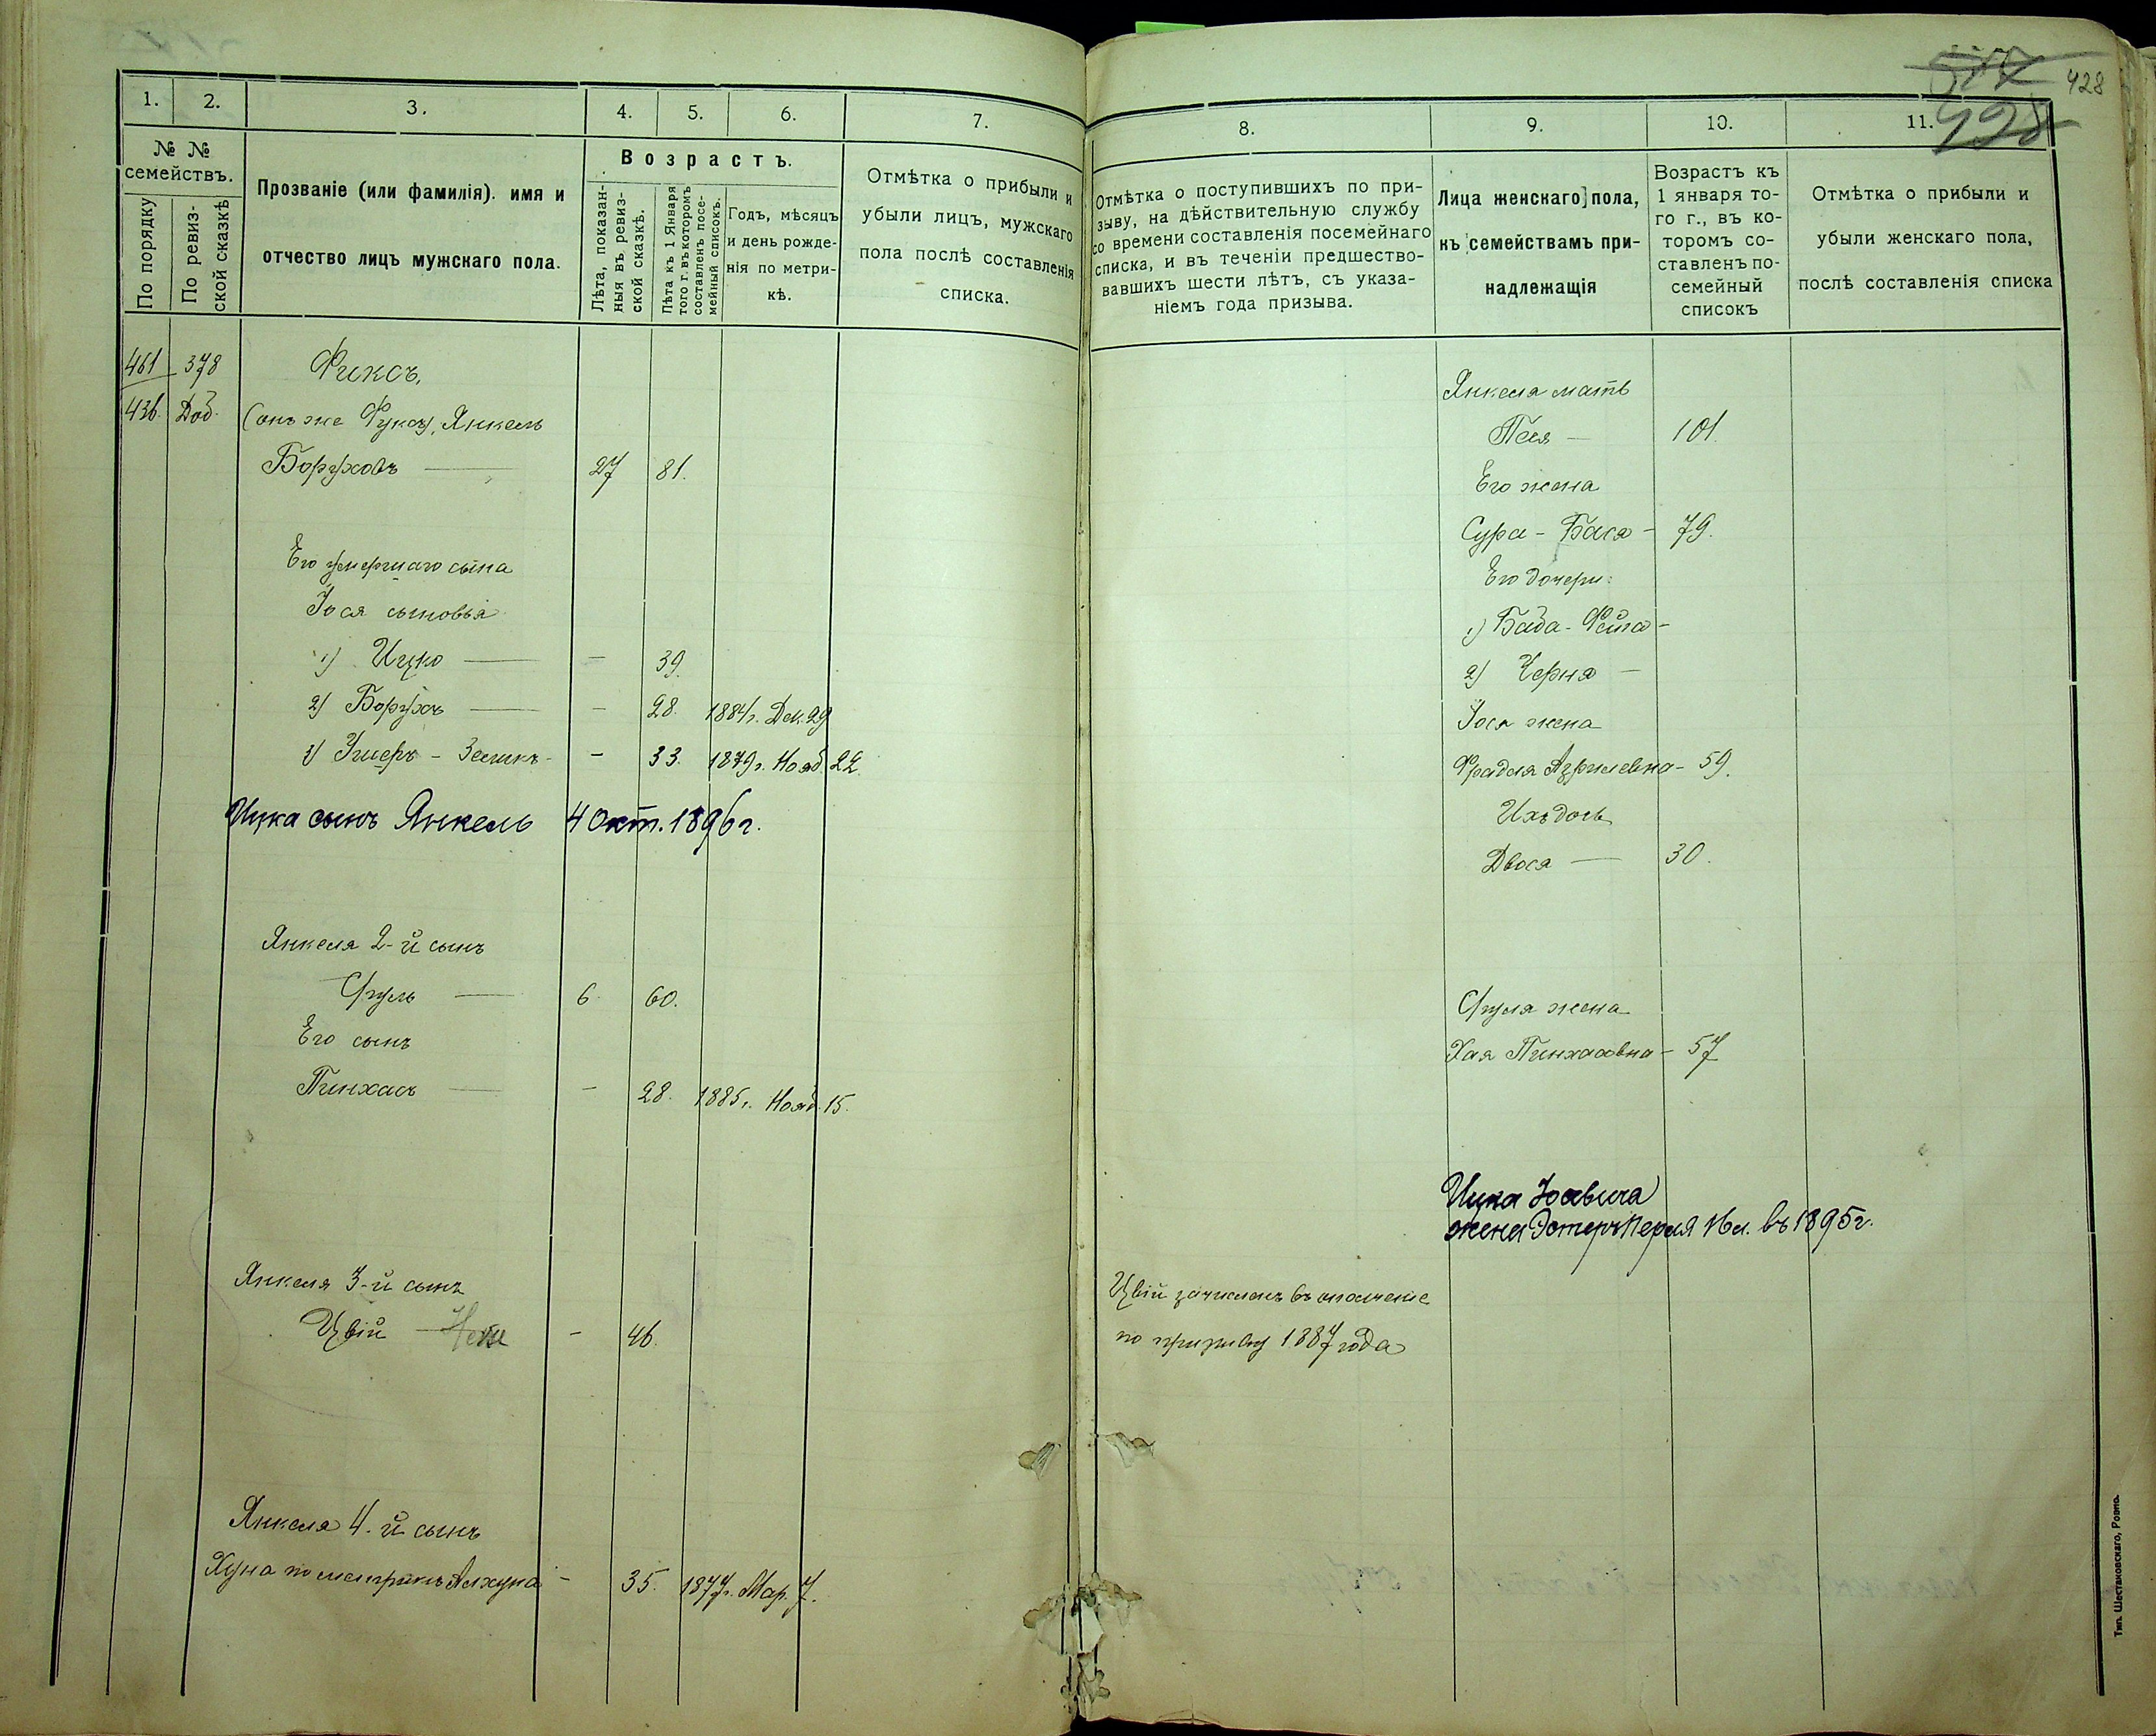 428
428
1.
2.
3.
4.
5.
6.
7.
№ №
семействъ.
По порядку
По ревиз-
ской сказкѣ
Прозваніе (или фамилія). имя и
отчество лицъ мужскаго пола.
Возрастъ.
Лѣта, показан-
ныя въ ревиз-
ской сказкѣ.
Лѣта къ 1 Января
того г. въ которомъ
составленъ посе-
мейный списокъ.
Годъ, мѣсяцъ
и день рожде-
нія по метри-
кѣ.
Отмѣтка о прибыли и
убыли лицъ, мужскаго
пола послѣ составленія
списка.
461 378 Фиксъ,
436. Доб. (онъ же Фуксъ), Янкель
Боруховъ — 27 81.
Его умершаго сына
Іося сыновья
1) Ицко — — 39.
2) Борухъ — — 28. 1884 г. Дек. 29
3) Ушеръ - Зеликъ - — 33. 1879 г. Нояб. 22.
Ицка сынъ Янкель 4 Окт. 1896 г.
Янкеля 2-й сынъ
Сруль — 6 60.
Его сынъ
Пинхасъ — — 28. 1885 г. Нояб. 15.
Янкеля 3-й сынъ
Цвій — 46.
Янкеля 4-й сынъ
Хуна по метрикѣ Алхуна - 35. 1877 г. Мар. 7.
8.
9.
10.
11.
Отмѣтка о поступившихъ по при-
зыву, на дѣйствительную службу
со времени составленія посемейнаго
списка, и въ теченіи предшество-
вавшихъ шести лѣтъ, съ указа-
ніемъ года призыва.
Лица женскаго пола,
къ семействамъ при-
надлежащія
Возрастъ къ
1 января то-
го г., въ ко-
торомъ со-
ставленъ по-
семейный
списокъ
Отмѣтка о прибыли и
убыли женскаго пола,
послѣ составленія списка
Янкеля мать
Пея — 101.
Его жена
Сура - Бася - 79.
Его дочери:
1) Баба - Фейга -
2) Черня —
Іося жена
Фрадля Азрилевна - 59.
Ихъ дочь
Двося — 30.
Сруля жена
Хая Пинхасовна - 57
Ицка Іосевича
жена Эстеръ Перля 16 л. въ 1895 г.
Цвій зачисленъ въ ополченіе
по призыву 1887 года
Тип. Шестаковскаго, Ровно.